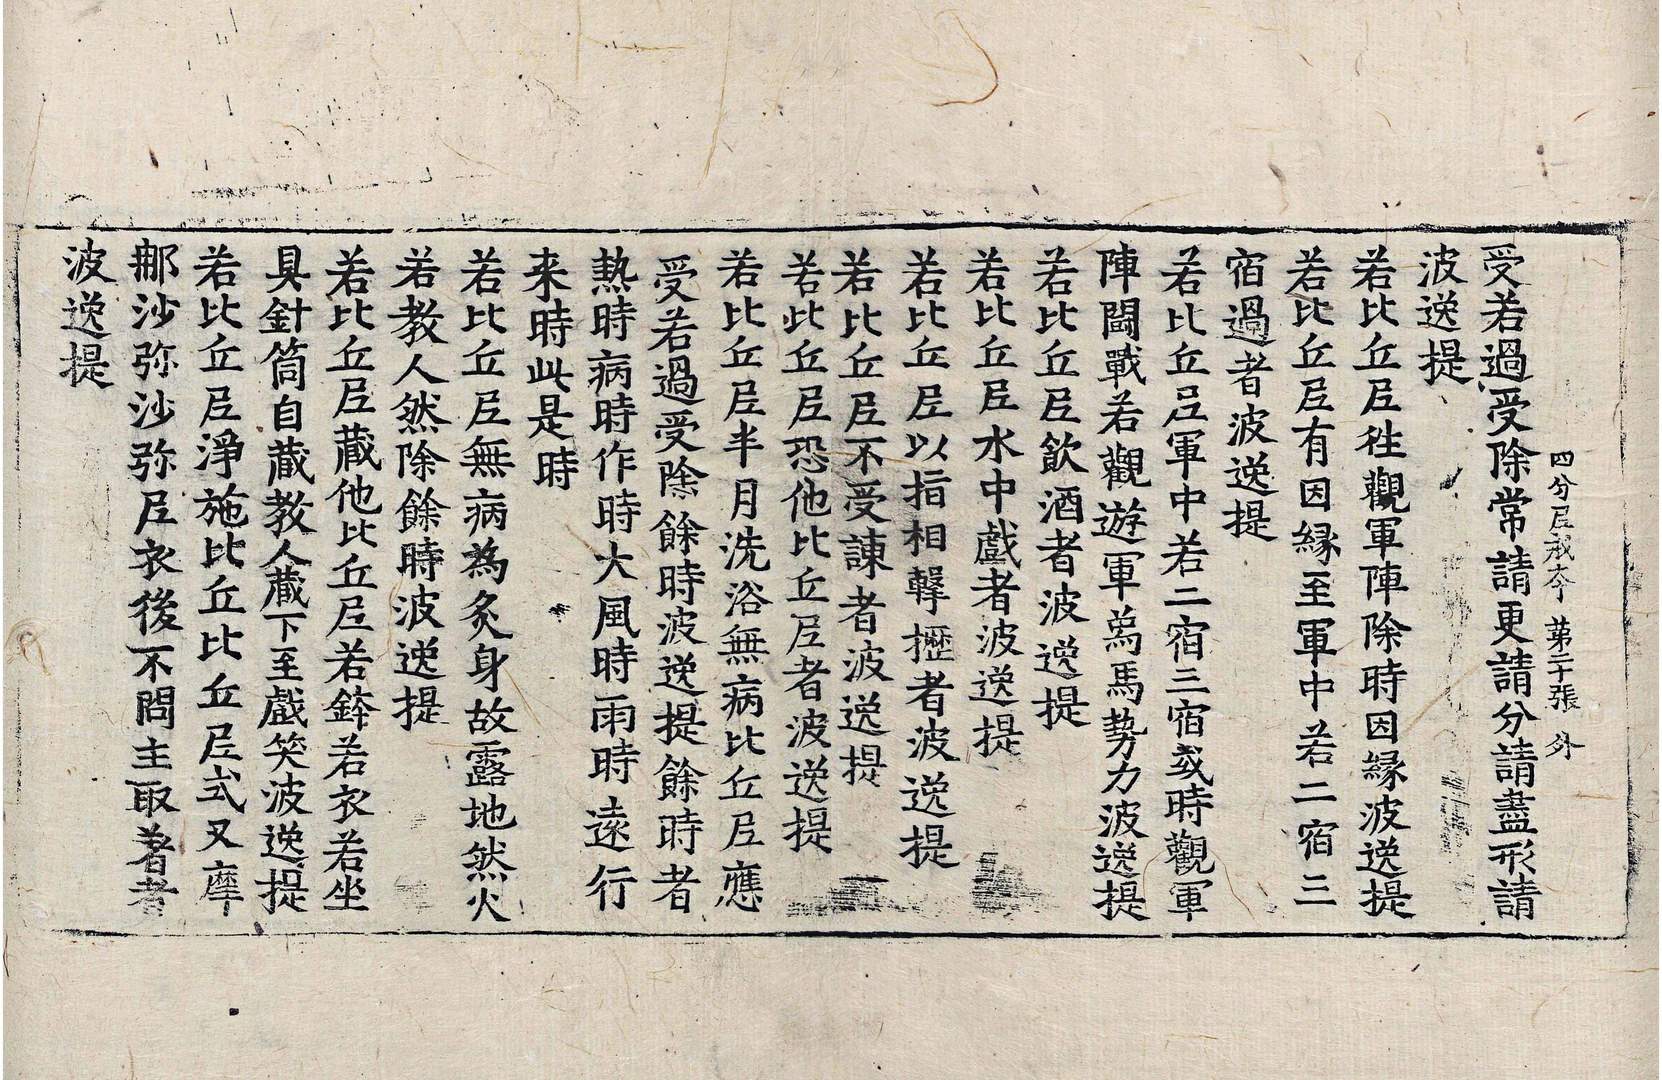 四分尼戒本 第二十張 外
受若過受除常請更請分請盡形請
波逸提
若比丘尼往觀軍陣除時因緣波逸提
若比丘尼有因緣至軍中若二宿三
宿過者波逸提
若比丘尼軍中若二宿三宿或時觀軍
陣鬪戰若觀遊軍象馬勢力波逸提
若比丘尼飲酒者波逸提
若比丘尼水中戲者波逸提
若比丘尼以指相擊攊者波逸提
若比丘尼不受諫者波逸提
若比丘尼恐他比丘尼者波逸提
若比丘尼半月洗浴無病比丘尼應
受若過受除餘時波逸提餘時者
熱時病時作時大風時雨時遠行
来時此是時
若比丘尼無病為炙身故露地然火
若教人然除餘時波逸提
若比丘尼藏他比丘尼若鉢若衣若坐
具針筒自藏教人藏下至戲笑波逸提
若比丘尼淨施比丘比丘尼式叉摩
那沙弥沙弥尼衣後不問主取著者
波逸提